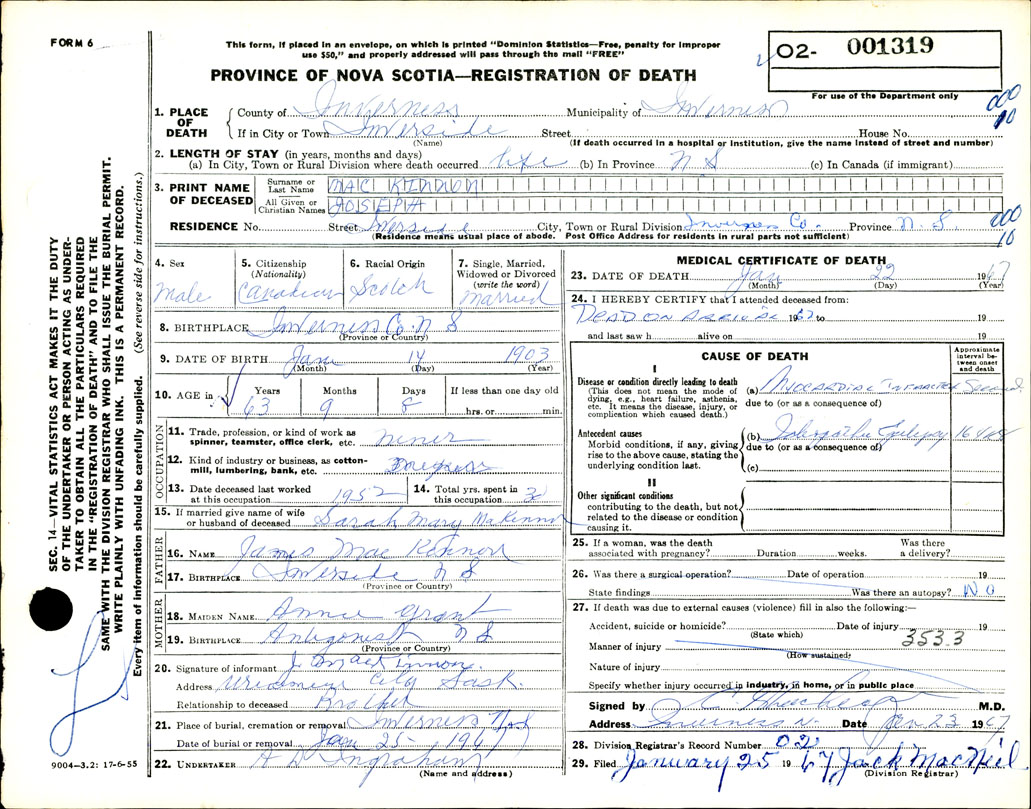 FORM 6
This form, if placed in an envelope, on which is printed "Dominion Statistics—Free, penalty for improper
use $50," and properly addressed will pass through the mail "FREE"
PROVINCE OF NOVA SCOTIA—REGISTRATION OF DEATH
O2- 001319
For use of the Department only
000
10
1. PLACE OF DEATH County of Inverness Municipality of Inverness
If in City or Town Inverside Street House No.
(Name) (If death occurred in a hospital or institution, give the name instead of street and number)
2. LENGTH OF STAY (in years, months and days)
(a) In City, Town or Rural Division where death occurred life (b) In Province N S (c) In Canada (if immigrant)
3. PRINT NAME OF DECEASED Surname or Last Name MAC KINNON
All Given or Christian Names JOSEPH
RESIDENCE No. Street Inverside City, Town or Rural Division Inverness Co. Province N. S.
(Residence means usual place of abode. Post Office Address for residents in rural parts not sufficient)
000
10
4. Sex Male
5. Citizenship (Nationality) Canadian
6. Racial Origin Scotch
7. Single, Married, Widowed or Divorced (write the word) Married
8. BIRTHPLACE Inverness Co. N S
(Province or Country)
9. DATE OF BIRTH Jan 14 1903
(Month) (Day) (Year)
10. AGE in Years 63 Months 9 Days 8 If less than one day old hrs. or min.
OCCUPATION
11. Trade, profession, or kind of work as spinner, teamster, office clerk, etc. miner
12. Kind of industry or business, as cotton-mill, lumbering, bank, etc.
13. Date deceased last worked at this occupation 1952
14. Total yrs. spent in this occupation
15. If married give name of wife or husband of deceased Sarah Mary MacKinnon
FATHER
16. NAME James Mac Kinnon
17. BIRTHPLACE Inverside N S
(Province or Country)
MOTHER
18. MAIDEN NAME Annie Grant
19. BIRTHPLACE Antigonish N S
(Province or Country)
20. Signature of informant J. MacKinnon.
Address City Sask.
Relationship to deceased Brother
21. Place of burial, cremation or removal Inverness N.S
Date of burial or removal Jan 25 - 1967
22. UNDERTAKER A D Ingraham
(Name and address)
MEDICAL CERTIFICATE OF DEATH
23. DATE OF DEATH Jan 22 1967
(Month) (Day) (Year)
24. I HEREBY CERTIFY that I attended deceased from:
DEAD ON ARRIVAL 1967 to 19
and last saw h alive on 19
CAUSE OF DEATH
Approximate interval between onset and death
I
Disease or condition directly leading to death
(This does not mean the mode of dying, e.g., heart failure, asthenia, etc. It means the disease, injury, or complication which caused death.)
(a) Myocardial Infarction
due to (or as a consequence of)
Antecedent causes
Morbid conditions, if any, giving rise to the above cause, stating the underlying condition last.
(b) Idiopathic Epilepsy 16 yrs
due to (or as a consequence of)
(c)
II
Other significant conditions
contributing to the death, but not related to the disease or condition causing it.
25. If a woman, was the death associated with pregnancy? Duration weeks. Was there a delivery?
26. Was there a surgical operation? Date of operation 19
State findings Was there an autopsy? NO
27. If death was due to external causes (violence) fill in also the following:—
Accident, suicide or homicide? Date of injury 19
(State which)
353.3
Manner of injury
(How sustained)
Nature of injury
Specify whether injury occurred in industry, in home, or in public place
Signed by M.D.
Address Inverness N. Date Jan 23 1967
28. Division Registrar's Record Number 02
29. Filed January 25 1967 Jack MacNeil
(Division Registrar)
SEC. 14—VITAL STATISTICS ACT MAKES IT THE DUTY
OF THE UNDERTAKER OR PERSON ACTING AS UNDER-
TAKER TO OBTAIN ALL THE PARTICULARS REQUIRED
IN THE "REGISTRATION OF DEATH" AND TO FILE THE
SAME WITH THE DIVISION REGISTRAR WHO SHALL ISSUE THE BURIAL PERMIT.
WRITE PLAINLY WITH UNFADING INK. THIS IS A PERMANENT RECORD.
Every item of information should be carefully supplied. (See reverse side for instructions.)
9004-3.2: 17-6-55